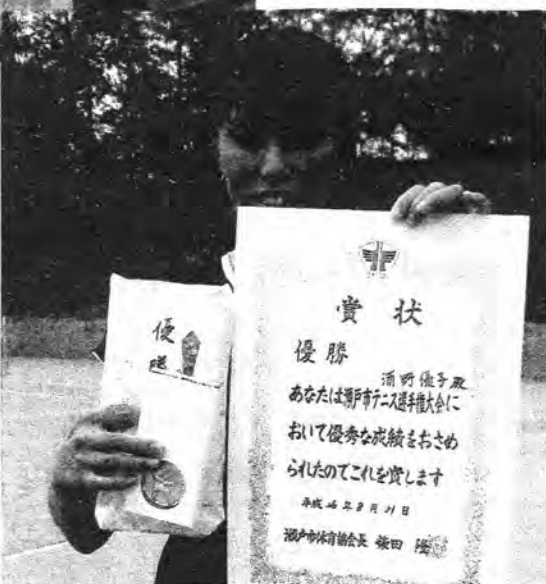 優
勝
賞 状
優 勝
優子殿
あなたは瀬戸市テニス選手権大会に
おいて優秀な成績をおさめ
られたのでこれを賞します
平成 年8月21日
瀬戸市体育協会長 田 隆